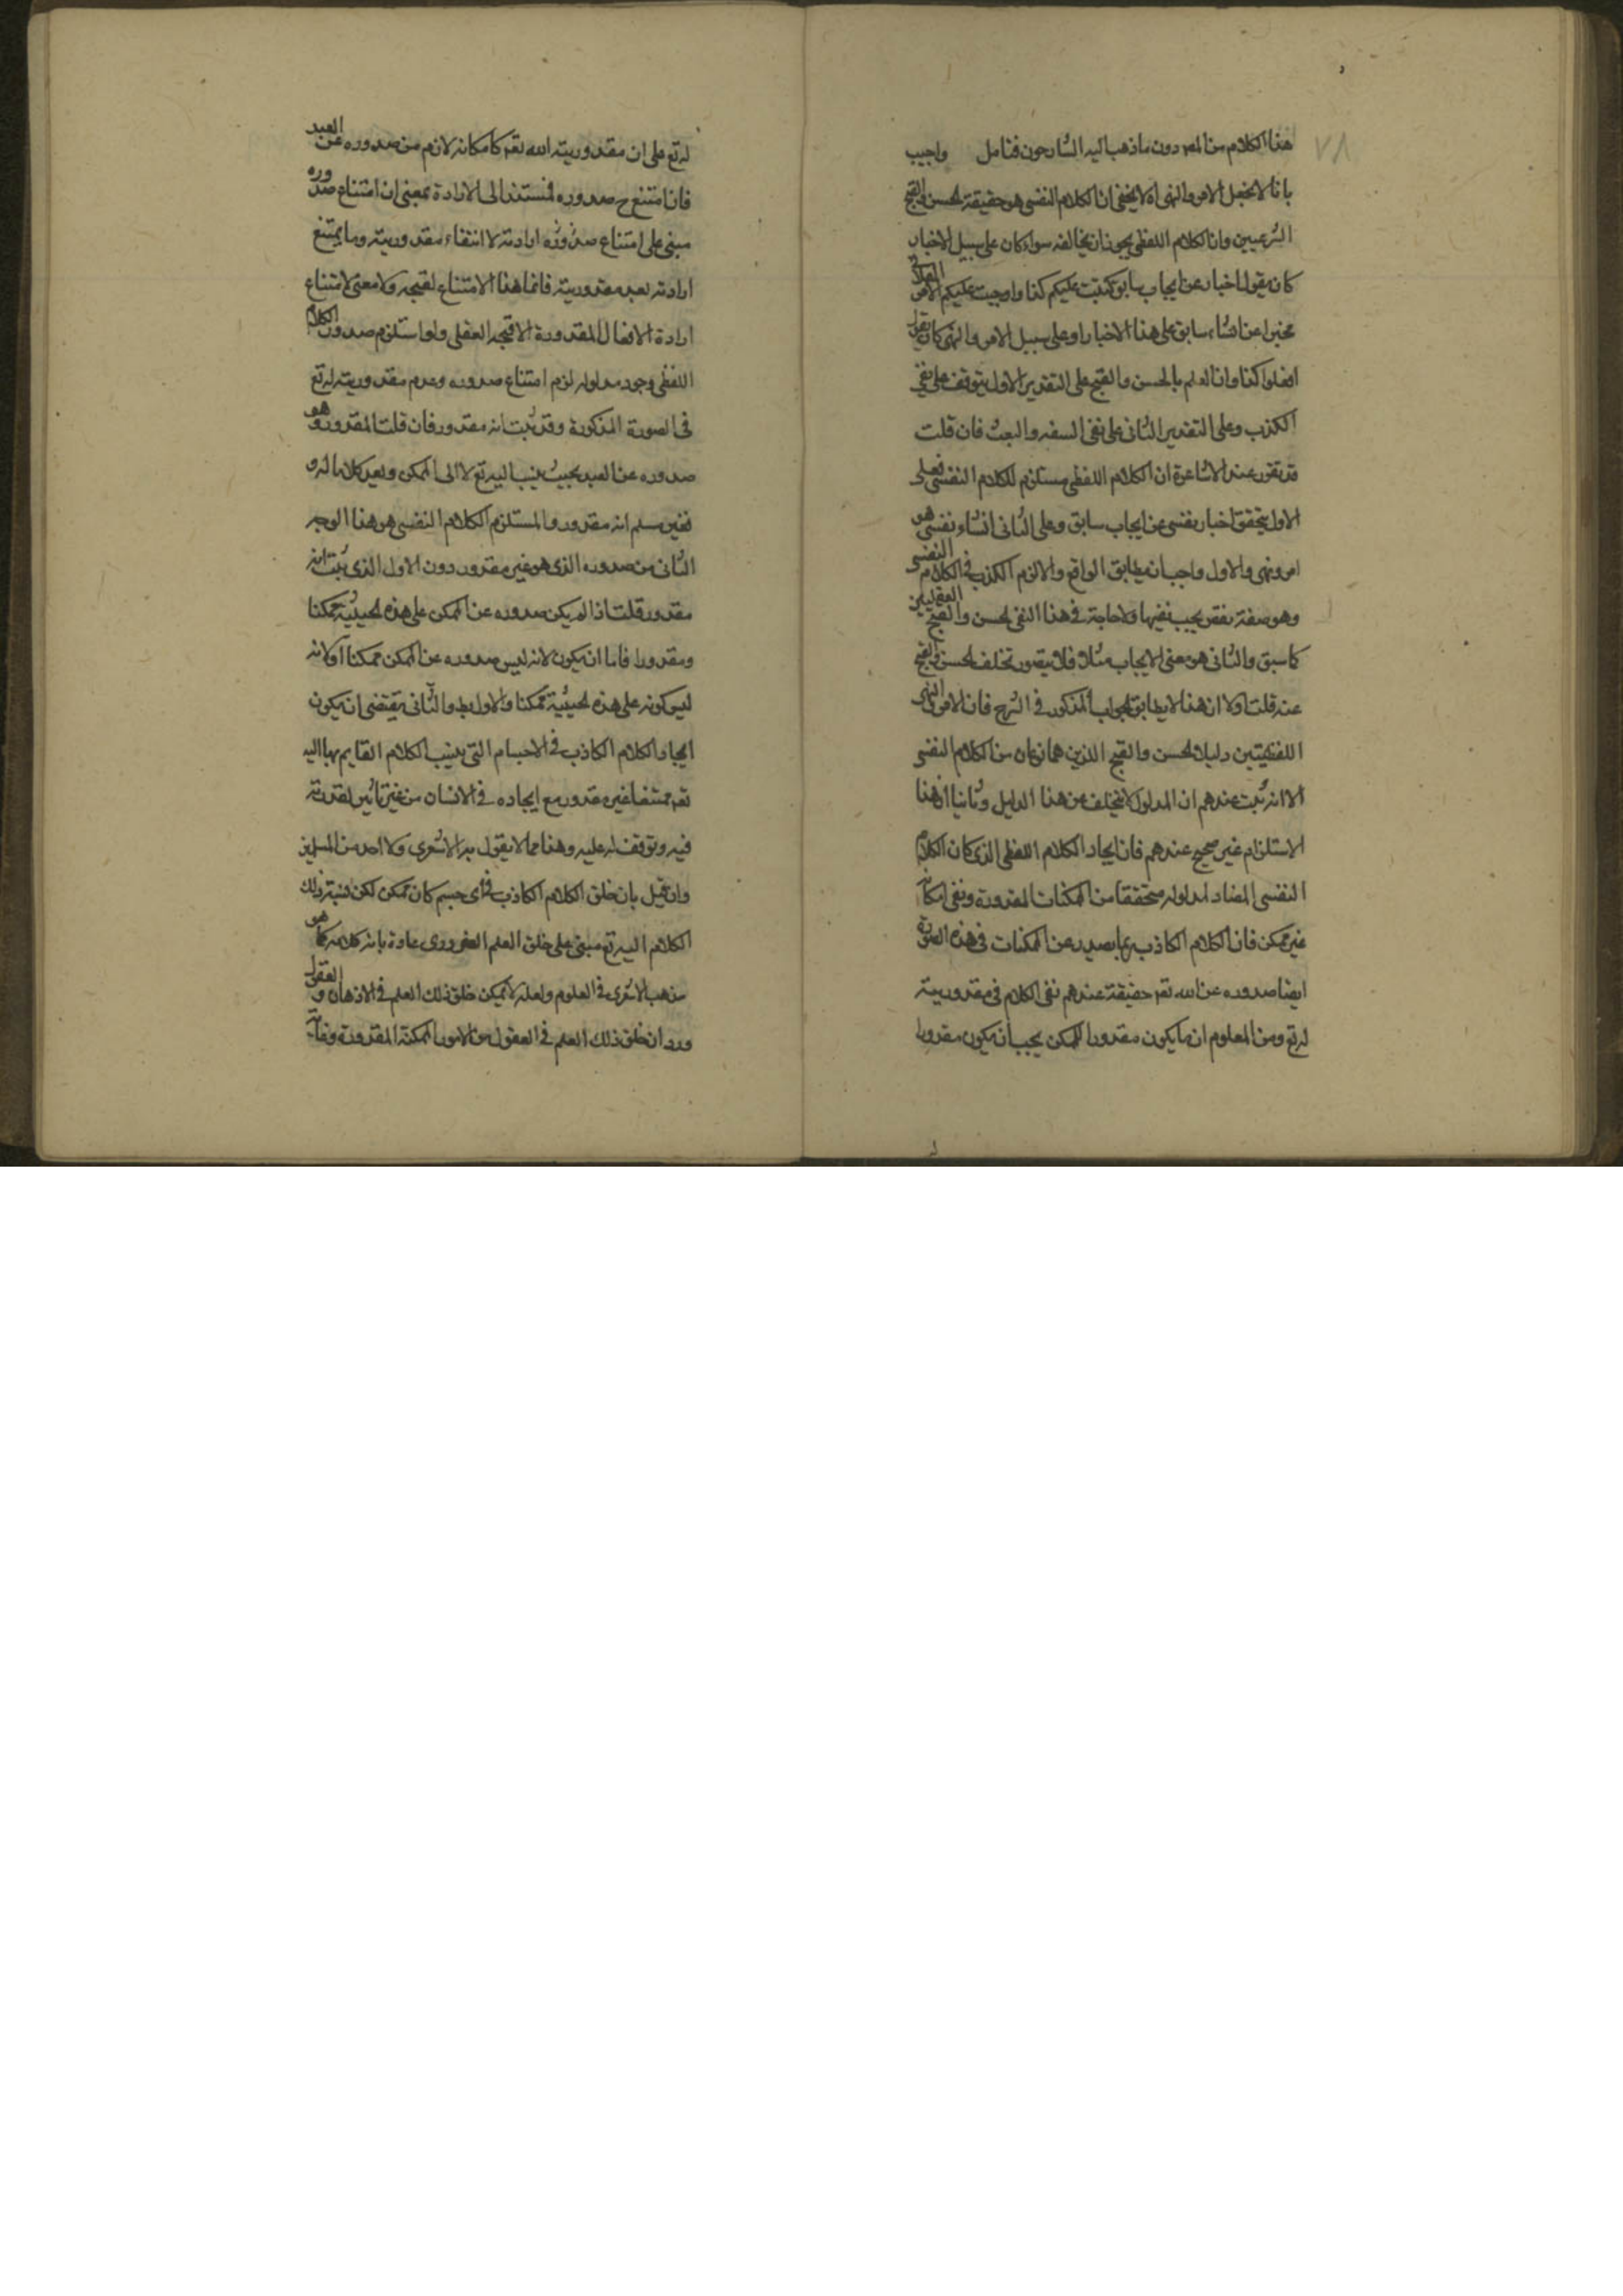 ٧٨
هذا الكلام من المص دون ما ذهب اليه الشارحون فتامل واجيب
بانا لا نجعل الامر والنهى اه لا يخفى ان الكلام النفسى هو حقيقة الحسن والقبح
الشرعيين وان الكلام اللفظى يجوز ان يخالفه سواء كان على سبيل الاخبار
كان يقول اخبار عن ايجاب سابق كتبت عليكم كذا واوجبت عليكم الامر الفلانى
مخبرا عن انشاء سابق على هذا الاخبار او على سبيل الامر والنهى كان يقول
افعلوا كذا وان العلم بالحسن والقبح على التقدير الاول يتوقف على نفى
الكذب وعلى التقدير الثانى على نفى السفه والبعث فان قلت
قد تقرر عند الاشاعرة ان الكلام اللفظى مستلزم للكلام النفسى فعلى
الاول يتحقق اخبار نفسى عن ايجاب سابق وعلى الثانى انشاء نفسى هو
امر ونهى والاول واجب ان يطابق الواقع والا لزم الكذب فى الكلام النفسى
وهو صفة نقص يجب نفيها ولا حاجة فى هذا النفى لحسن والقبح العقليين
كما سبق والثانى هو معنى الايجاب مثلا فلا يتصور تخلف الحسن والقبح
عنه قلت اولا ان هذا لا يطابق الجواب المذكور فى الشرح فان الامر والنهى
اللفظيتين دليلا لحسن والقبح الذين هما نوعان من الكلام النفسى
الا انه ثبت عندهم ان المدلول لا يتخلف عن هذا الدليل وثانيا ان هذا
الاستلزام غير صحيح عندهم فان ايجاد الكلام اللفظى الذى كان الكلام
النفسى المضاد لمدلوله متحققا من الممكنات المقدورة ونفى امكانه
غير ممكن فان الكلام الكاذب ربما يصدر عن الممكنات فى هذه الصورة
ايضا صدوره عن الله تعم حقيقة عندهم نفى الكلام فى مقدوريته
له تع ومن المعلوم ان ما يكون مقدورا للممكن يجب ان يكون مقدورا
له تع على ان مقدوريته الله تعم كامكانه لازم من صدوره عن العبد
فان امتنع ح صدوره فمستندا الى الارادة بمعنى ان امتناع صدوره
مبنى على امتناع صدوره ارادته لا انتفاء مقدوريته وما يمتنع
ارادته بعد مقدوريته فانما هذا الامتناع لقبحه ولا معنى لامتناع
ارادة الافعال المقدورة الا قبحه العقلى ولو استلزم صدور الكلام
اللفظى وجود مدلوله لزم امتناع صدوره وعدم مقدوريته له تع
فى الصورة المذكورة وقد ثبت انه مقدور فان قلت المقدور هو
صدوره عن العبد بحيث ينسب اليه تع لا الى الممكن ويعد كلاما له و
فغير مسلم انه مقدور والمستلزم الكلام النفسى هو هذا الوجه
الثانى من صدوره الذى هو غير مقدور دون الاول الذى ثبت انه
مقدور قلت اذا لم يكن صدوره عن الممكن على هذه الحيثية ممكنا
ومقدورا فاما ان يكون لانه ليس صدوره عن الممكن ممكنا او لانه
ليس كونه على هذه الحيثية ممكنا والاول بط والثانى يقتضى ان يكون
ايجاد الكلام الكاذب فى الاجسام التى ينسب الكلام القايم بها اليه
تعم ممتنعا غير مقدور مع ايجاده فى الانسان من غير تاثير لقدرته
فيه وتوقف له عليه وهذا مما لا يقول به الاشعرى ولا احد من المسلمين
وان قيل بان خلق الكلام الكاذب فى اى جسم كان ممكن لكن نسبة ذلك
الكلام اليه تع مبنى على خلق العلم الضرورى عادة بانه كلامه كما هو
مذهب الاشعرى فى العلوم ولعله لا يمكن خلق ذلك العلم فى الاذهان والعقول
ورد ان خلق ذلك العلم فى العقول من الامور الممكنة المقدورة